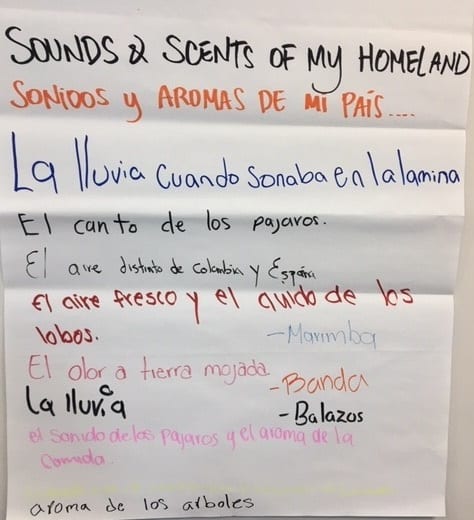 SOUNDS & SCENTS OF MY HOMELAND
SONIDOS y AROMAS DE MI PAÍS....
La lluvia cuando sonaba en la lamina
El canto de los pajaros.
El aire distinto de Colombia y España
El aire fresco y el auido de los
lobos.
-Marimba
El olor a tierra mojada
-Banda
la lluvia
-Balazos
el sonido de los pajaros y el aroma de la
comida.
aroma de los arboles